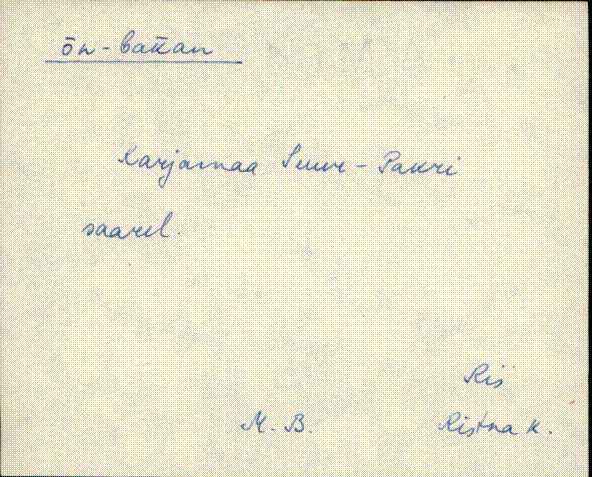 ōn-bakan
Karjamaa Suur-Pakri
saarel.
Ris
M. B. Ristna k.